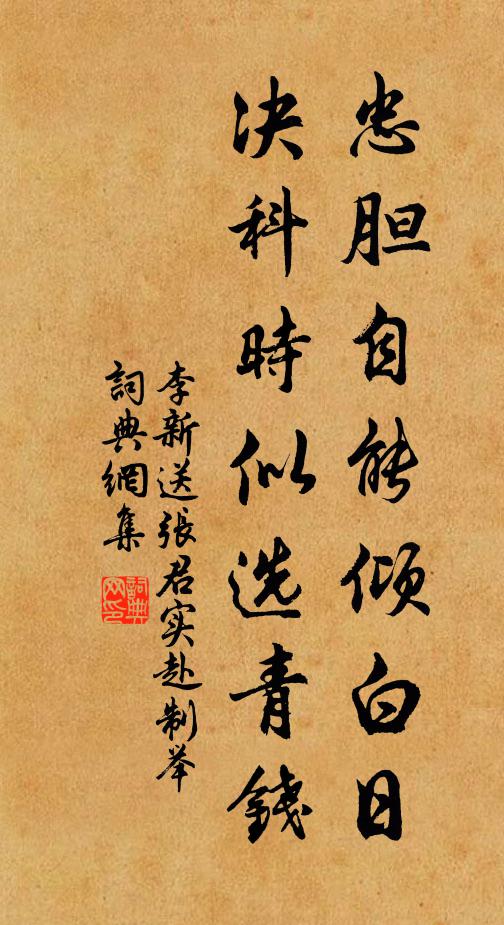 忠胆自能倾白日
决科時似选青錢
李新送張君实赴制举
詞典網集
詞典网印